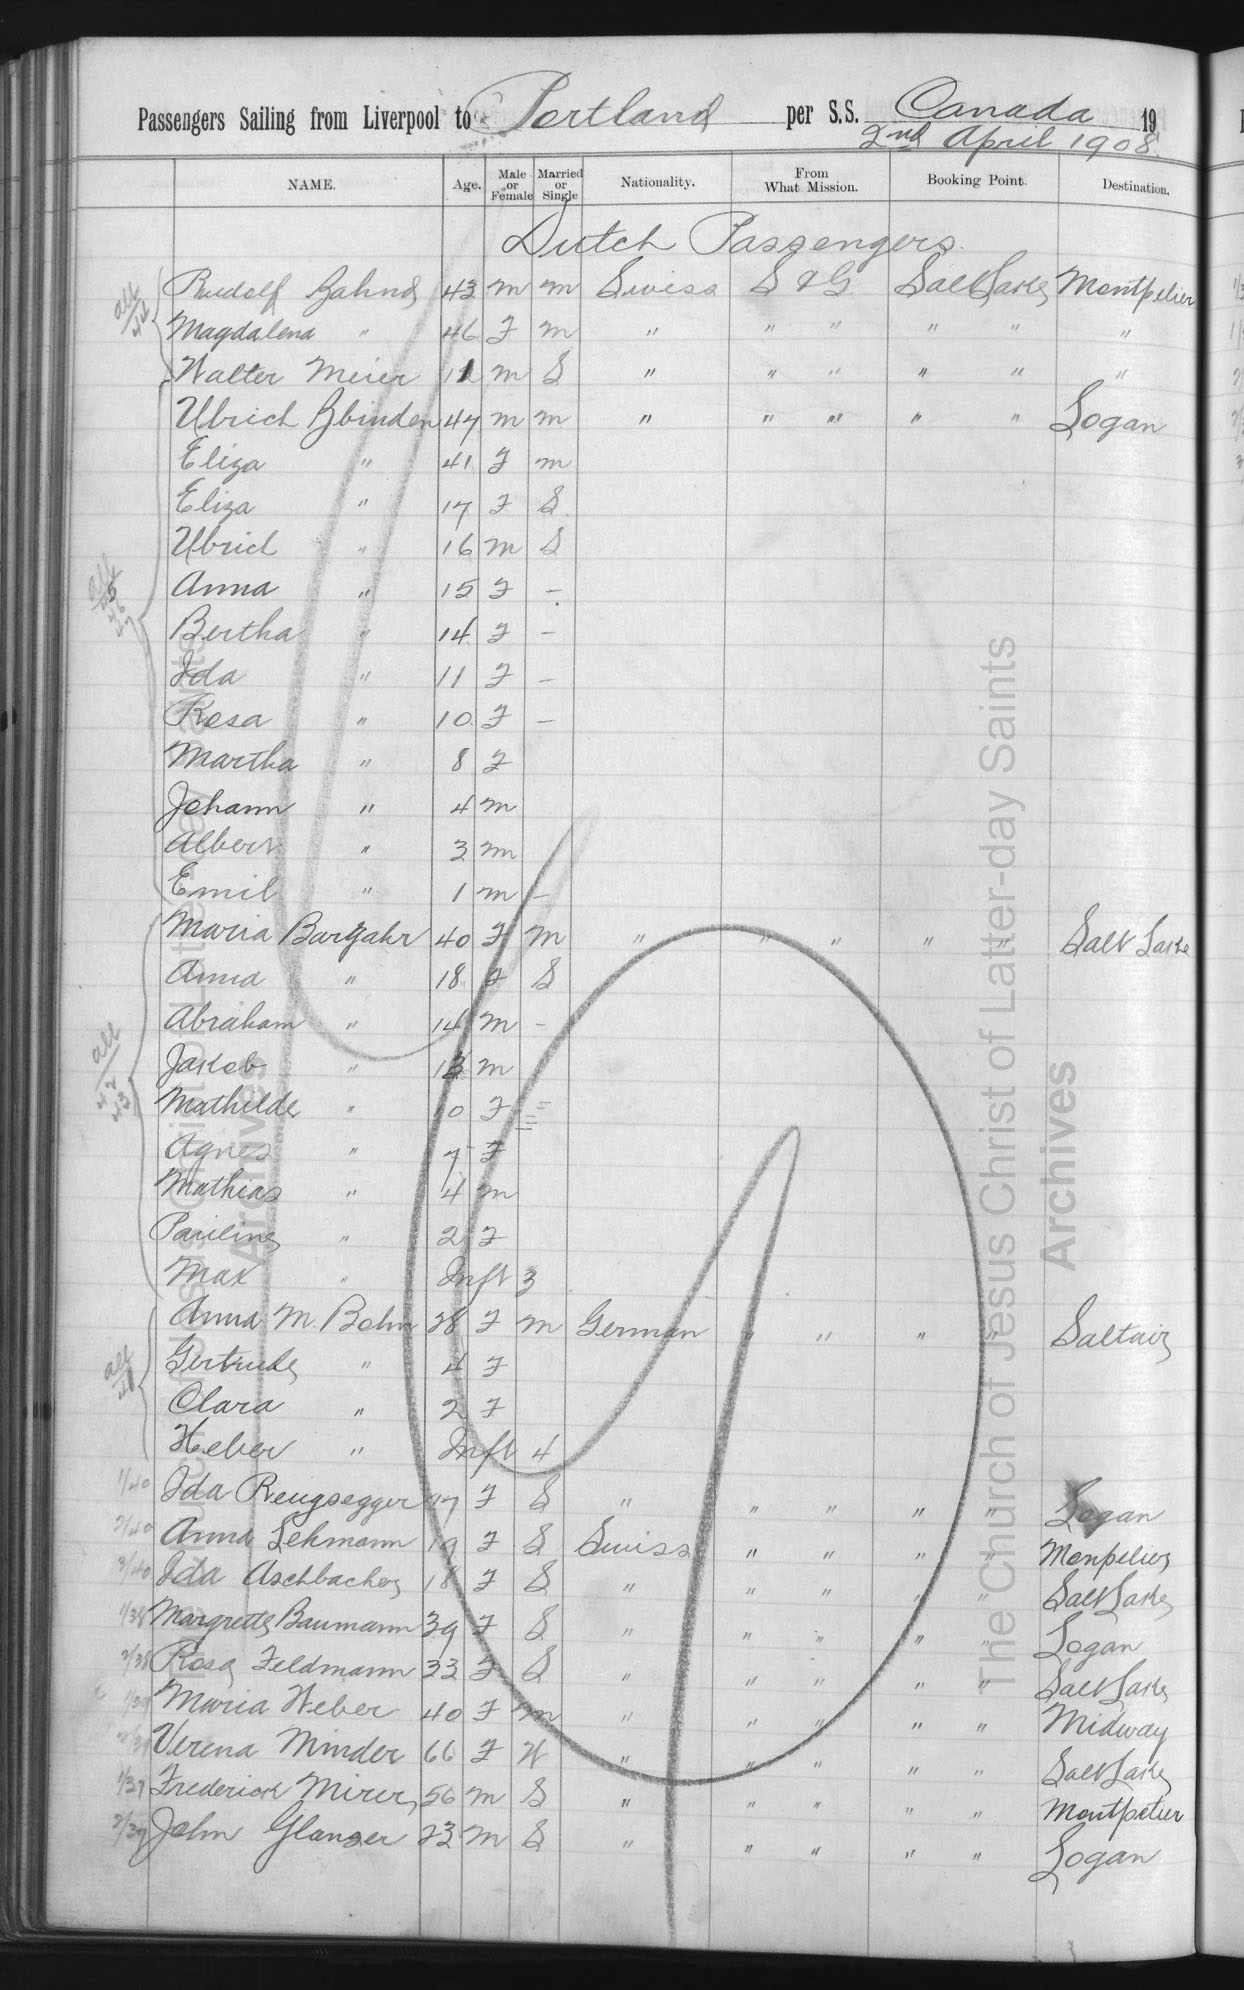 Passengers Sailing from Liverpool to Portland per S.S. Canada 19
2nd April 1908.
NAME. Age. Male or Female Married or Single Nationality. From What Mission. Booking Point. Destination.
Dutch Passengers.
Rudolf Zahnd 43 m m Swiss S & G. Salt Lake Montpelier
Magdalena " 46 F m " " " " " "
Walter Meier m S " " " " " "
Ulrich Zbinden 47 m m " " " " " Logan
Eliza " 41 F m
Eliza " 17 F S
Ulrich " 16 m S
Anna " 15 F -
Bertha " 14 F -
Ida " 11 F -
Rosa " 10 F -
Martha " 8 F
Johann " 4 m
Albert " 3 m
Emil " 1 m -
Maria Bargahr 40 F m " " " " " Salt Lake
Anna " 18 F S
Abraham " 14 m -
Jakob " 13 m
Mathilde " 10 F
Agnes " 7 F
Mathias " 4 m
Pauline " 2 F
Max " Inft 3
Anna M. Bohn 28 F m German " " " " Saltair
Gertrude " 4 F
Clara " 2 F
Heber " Inft 4
1/40 Ida Reugsegger 17 F S " " " " " Logan
2/40 Anna Lehmann 19 F S Swiss " " " " Monpelier
3/40 Ida Aschbacher 18 F S " " " " " Salt Lake
1/38 Margrette Baumann 39 F S " " " " " Logan
2/38 Rosa Feldmann 33 F S " " " " " Salt Lake
1/39 Maria Weber 40 F m " " " " " Midway
2/39 Verena Minder 66 F W " " " " " Salt Lake
1/37 Frederick Mirer 56 m S " " " " " Montpelier
2/37 John Glanser 23 m S " " " " " Logan
all
44
all
45
46
47
all
42
43
all
41
The Church of Jesus Christ of Latter-day Saints
Archives